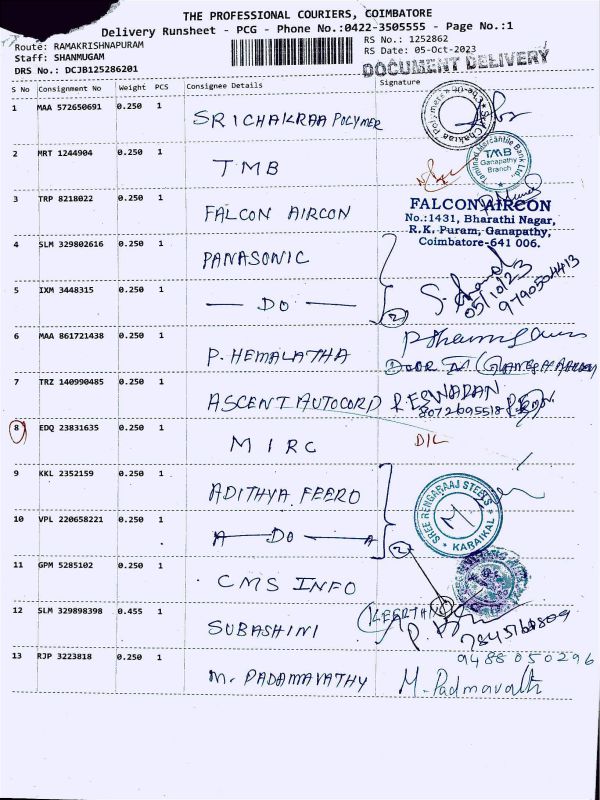 THE PROFESSIONAL COURIERS, COIMBATORE
Delivery Runsheet - PCG - Phone No.:0422-3505555 - Page No.:1
Route: RAMAKRISHNAPURAM
Staff: SHANMUGAM
DRS No.: DCJB125286201
RS No.: 1252862
RS Date: 05-Oct-2023
DOCUMENT DELIVERY
S No Consignment No Weight PCS Consignee Details Signature
1 MAA 572650691 0.250 1 SRICHAKRAA POLYMER
2 MRT 1244904 0.250 1 TMB
Tamilnad Mercantile Bank Ltd.
TMB
Ganapathy
Branch
3 TRP 8218022 0.250 1 FALCON AIRCON
FALCON AIRCON
No.:1431, Bharathi Nagar,
R.K. Puram, Ganapathy,
Coimbatore-641 006.
4 SLM 329802616 0.250 1 PANASONIC
5 IXM 3448315 0.250 1 — DO —
2
05/10/23
9790504413
6 MAA 861721438 0.250 1 P. HEMALATHA
7 TRZ 140990485 0.250 1 ASCENT AUTOCORD
P. ESWARAN
8072695518
8 EDQ 23831635 0.250 1 MIRC D/L
9 KKL 2352159 0.250 1 ADITHYA FEERO
10 VPL 220658221 0.250 1 — DO —
2
SREE RENGARAAJ STEELS
KARAIKAL
11 GPM 5285102 0.250 1 CMS INFO
12 SLM 329898398 0.455 1 SUBASHINI
(KEERTHI)
7845168809
13 RJP 3223818 0.250 1 M. PADAMAVATHY
9488050296
M. Padmavathi